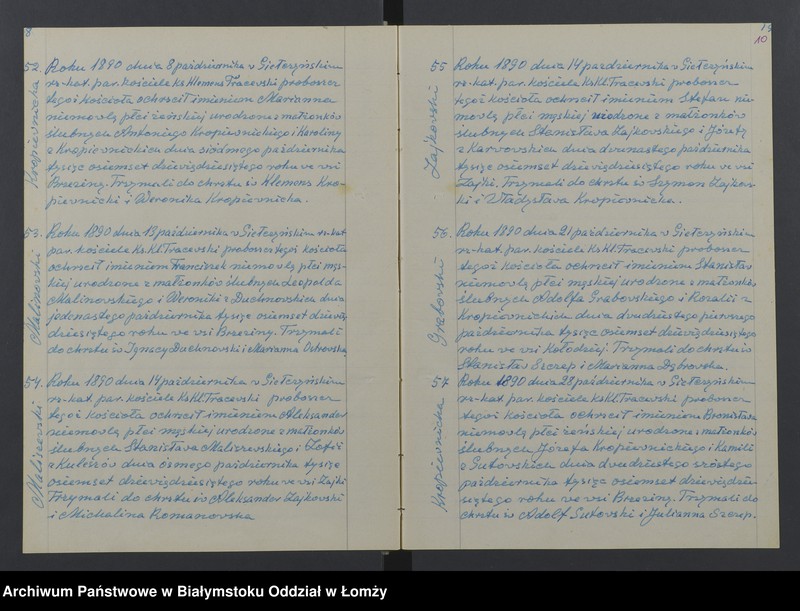 52. Roku 1890 dnia 8 października w Giełczyńskim
rz-kat. par. kościele ks Klemens Tracewski proboszcz
tegoż kościoła ochrcił imieniem Marianna
niemowlę płci żeńskiej urodzone z małżonków
ślubnych Antoniego Kropiewnickiego i Karoliny
z Kropiewnickich dnia siódmego października
tysiąc osiemset dziewięćdziesiątego roku we wsi
Brzeziny. Trzymali do chrztu św Klemens Kro-
piewnicki i Weronika Kropiewnicka.
Kropiewnicka
53. Roku 1890 dnia 13 października w Giełczyńskim rz-kat
par. kościele Ks Kl. Tracewski proboszcz tegoż kościoła
ochrcił imieniem Franciszek niemowlę płci męs-
kiej urodzone z małżonków ślubnych Leopolda
Malinowskiego i Weroniki z Duchnowskich dnia
jedenastego października tysiąc osiemset dziewię
dziesiątego roku we wsi Brzeziny. Trzymali
do chrztu św Ignacy Duchnowski i Marianna Ostrowska
Malinowski
54. Roku 1890 dnia 14 października w Giełczyńskim
rz-kat. par. kościele Ks Kl. Tracewski proboszcz
tegoż kościoła ochrcił imieniem Aleksander
niemowlę płci męskiej urodzone z małżonków
ślubnych Stanisława Maliszewskiego i Zofii
z Kuleszów dnia ósmego października tysiąc
osiemset dziewięćdziesiątego roku we wsi Zajki
Trzymali do chrztu św Aleksander Zajkowski
i Michalina Romanowska
Maliszewski
10
55 Roku 1890 dnia 14 października w Giełczyńskim
rz-kat. par. kościele Ks Kl. Tracewski proboszcz
tegoż kościoła ochrcił imieniem Stefan nie-
mowlę płci męskiej urodzone z małżonków
ślubnych Stanisława Zajkowskiego i Józefy
z Karwowskich dnia dwunastego października
tysiąc osiemset dziewięćdziesiątego roku we wsi
Zajki. Trzymali do chrztu św Szymon Zajkow-
ski i Władysława Kropiewnicka.
Zajkowski
56. Roku 1890 dnia 21 października w Giełczyńskim
rz-kat. par. kościele Ks Kl Tracewski proboszcz
tegoż kościoła ochrcił imieniem Stanisław
niemowlę płci męskiej urodzone z małżonków
ślubnych Adolfa Grabowskiego i Rozalii z
Kropiewnickich dnia dwudziestego pierwszego
października tysiąc osiemset dziewięćdziesiątego
roku we wsi Kołodzież. Trzymali do chrztu św
Stanisław Szczep i Marianna Dąbrowska.
Grabowski
57 Roku 1890 dnia 28 października w Giełczyńskim
rz-kat. par. kościele Ks Kl. Tracewski proboszcz
tegoż kościoła ochrcił imieniem Bronisława
niemowlę płci żeńskiej urodzone z małżonków
ślubnych Józefa Kropiewnickiego i Kamili
z Gutowskich dnia dwudziestego szóstego
października tysiąc osiemset dziewięćdzie-
siątego roku we wsi Brzeziny. Trzymali do
chrztu św Adolf Gutowski i Julianna Szczep.
Kropiewnicka
Archiwum Państwowe w Białymstoku Oddział w Łomży